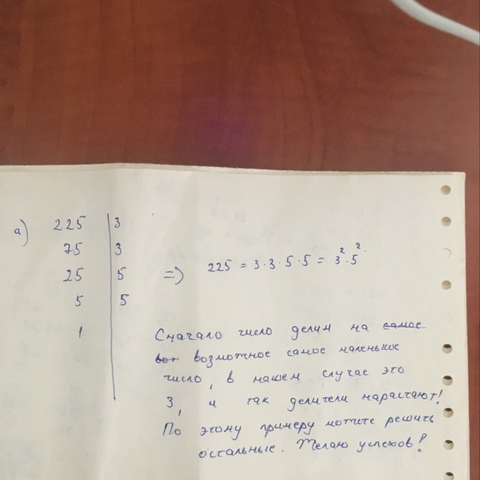 а) 225 | 3
75 | 3
25 | 5 => 225 = 3·3·5·5 = 3²·5².
5 | 5
1
Сначало число делим на самое
вот возможное самое маленькое
число, в нашем случае это
3, и так делители нарастают!
По этому примеру можите решить
остальные. Желаю успехов!